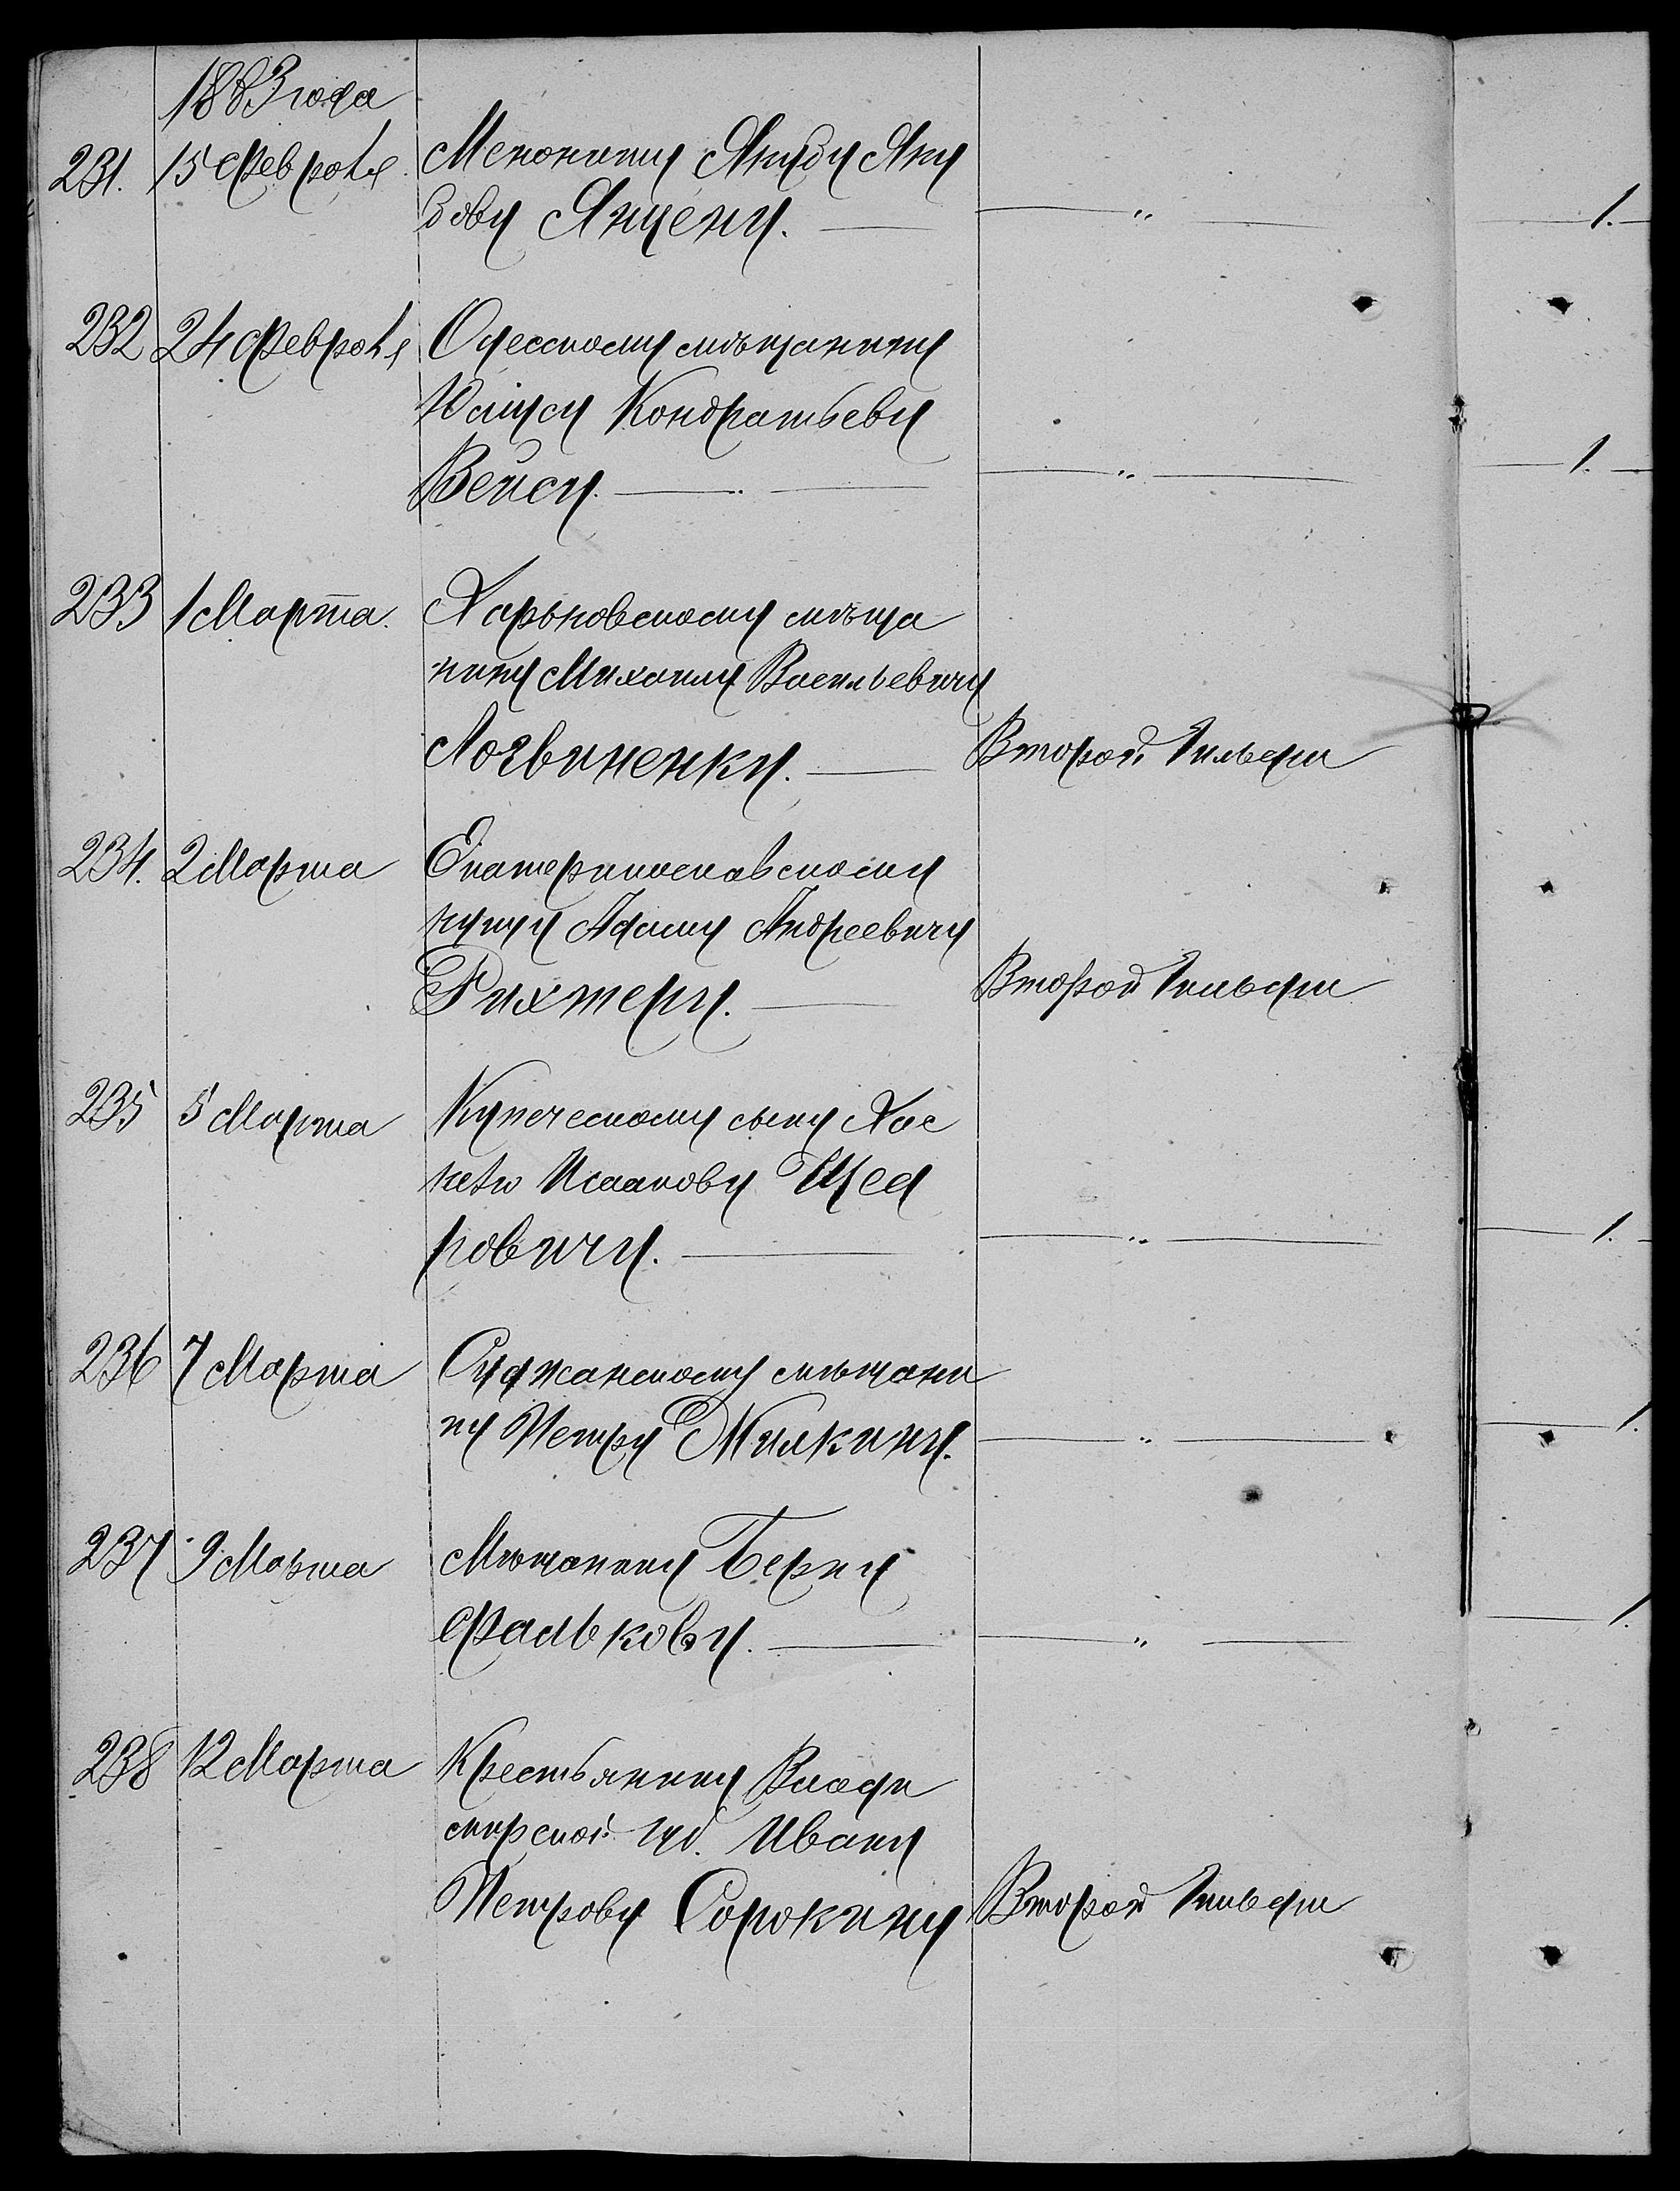 1883 года
231. 15 Февраля Менониту Якубу Яку
бову Янцену. — „ — 1.
232 24 Февраля Одесскому мѣщанину
Юліусу Кондратьеву
Вейсу. — „ — 1.
233 1 Марта. Харьковскому мѣща
нину Михаилу Васильевичу
Логвиненку. — Второй Гильдіи
234. 2 Марта Екатеринославскому
купцу Адаму Андреевичу
Рихтеру. — Второй Гильдіи
235 5 Марта Купеческому сыну Хас
келю Исаакову Щед
ровичу. — „ — 1.
236 7 Марта Суджанскому мѣщани
ну Петру Жилкину. — „ — 1.
237 9 Марта Мѣщанину Берку
Фалькову. — „ — 1.
238 12 Марта Крестьянину Влади
мирской губ. Ивану
Петрову Сорокину Второй Гильдіи